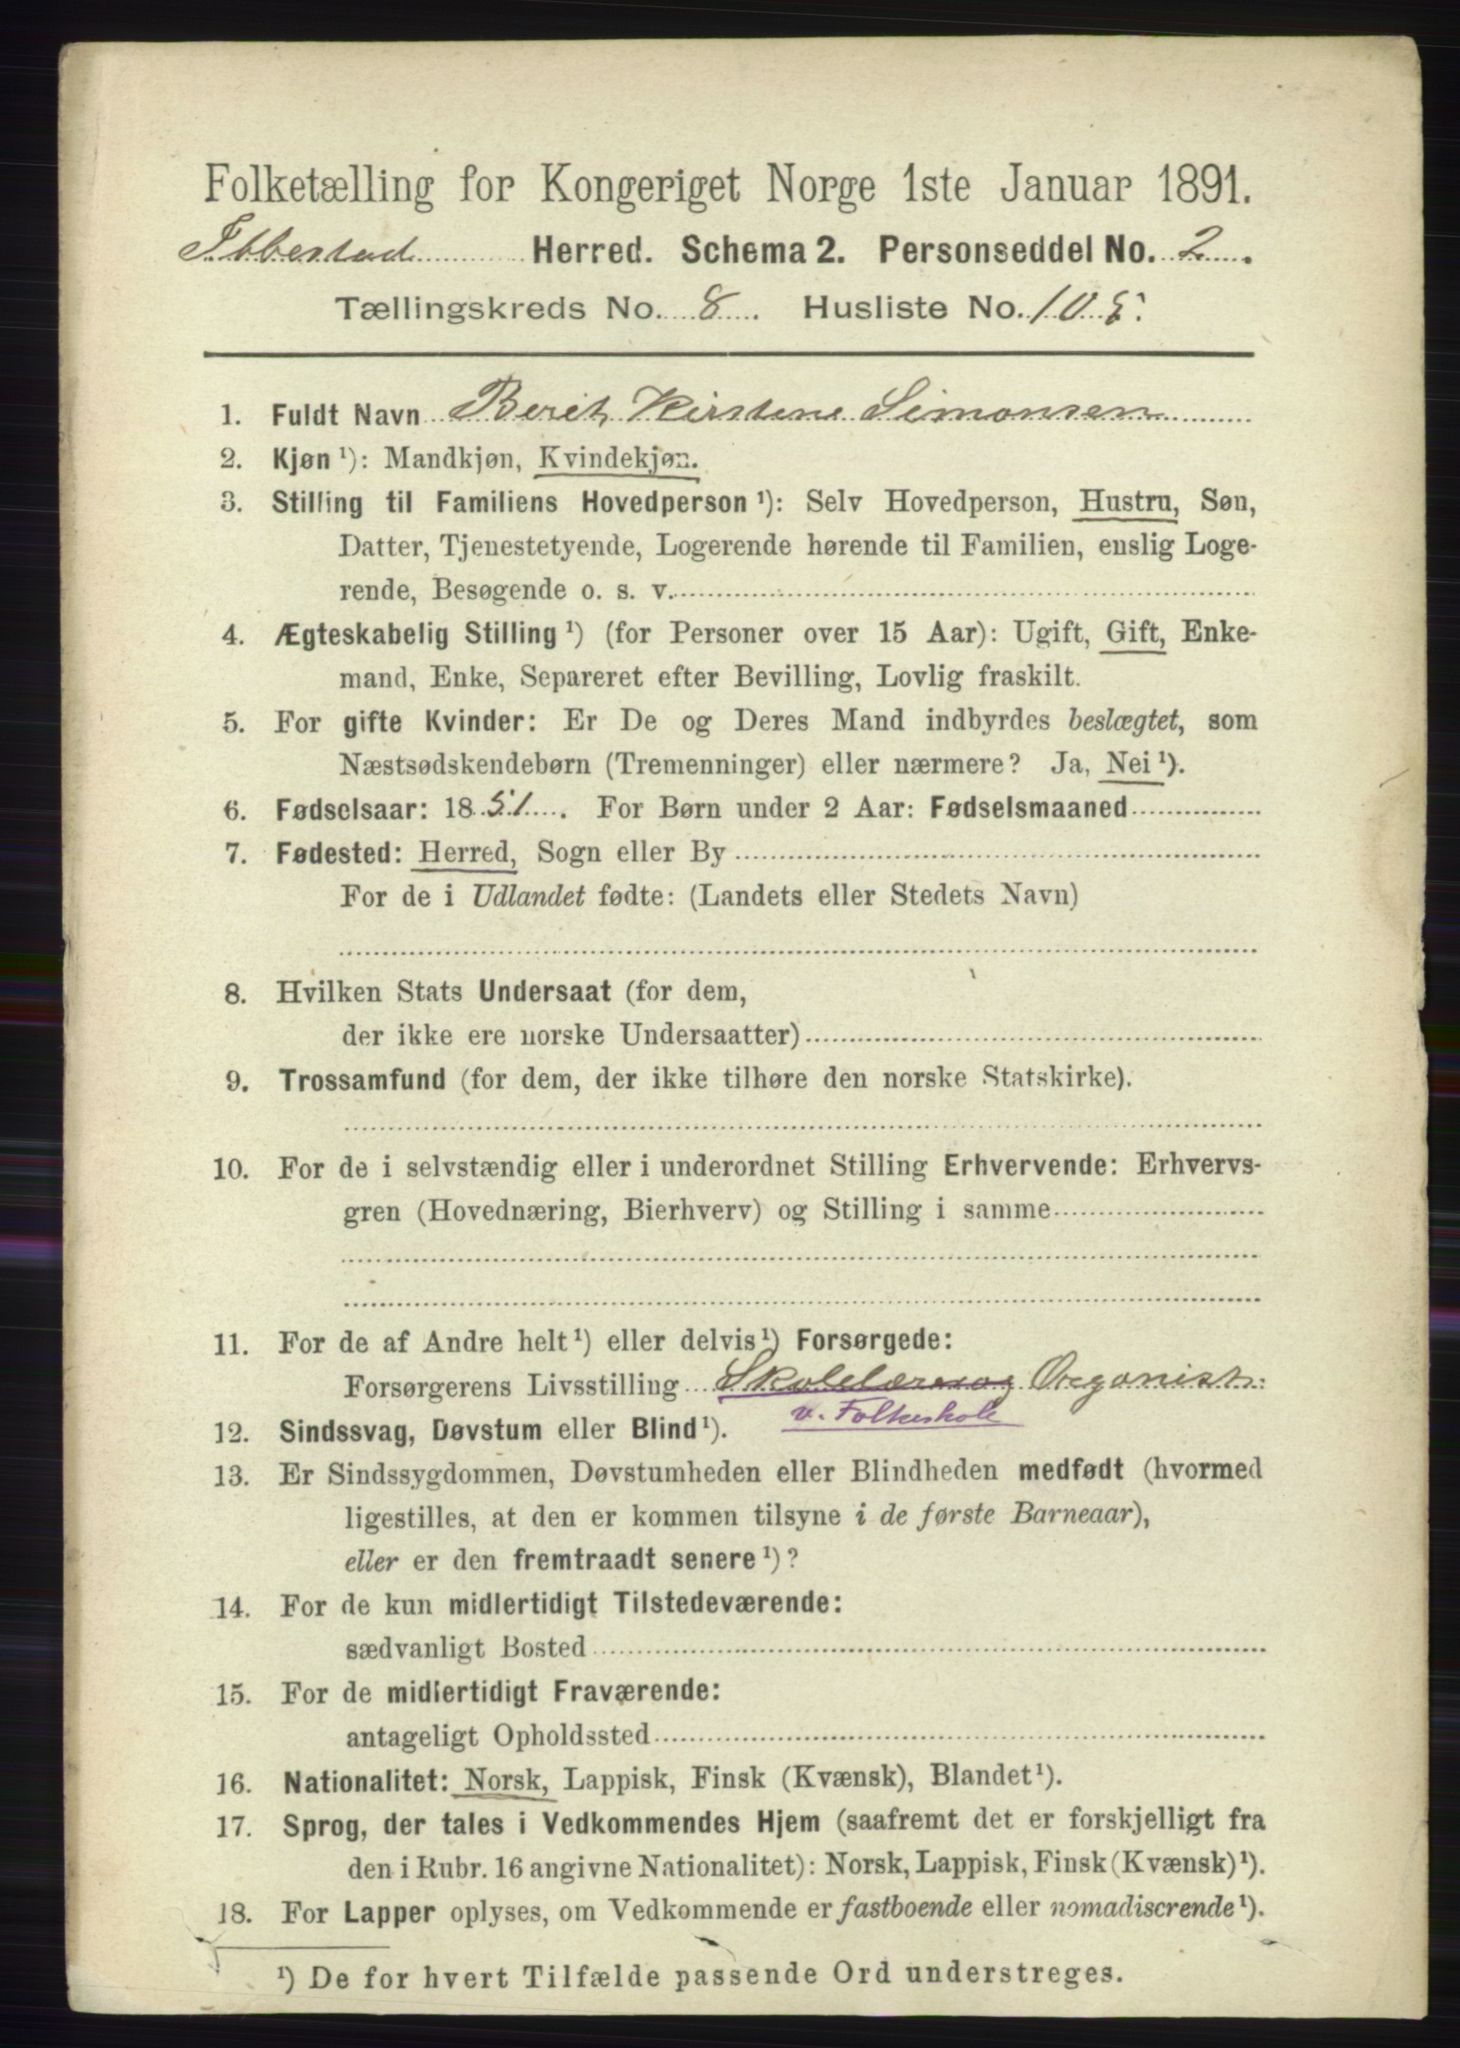 Folketælling for Kongeriget Norge 1ste Januar 1891.
Ibbestad Herred. Schema 2. Personseddel No. 2.
Tællingskreds No. 8. Husliste No. 105.
1. Fuldt Navn Berit Kirstine Simonsen
2. Kjøn ¹): Mandkjøn, Kvindekjøn.
3. Stilling til Familiens Hovedperson ¹): Selv Hovedperson, Hustru, Søn,
Datter, Tjenestetyende, Logerende hørende til Familien, enslig Loge-
rende, Besøgende o. s. v.
4. Ægteskabelig Stilling ¹) (for Personer over 15 Aar): Ugift, Gift, Enke-
mand, Enke, Separeret efter Bevilling, Lovlig fraskilt.
5. For gifte Kvinder: Er De og Deres Mand indbyrdes beslægtet, som
Næstsødskendebørn (Tremenninger) eller nærmere? Ja, Nei ¹).
6. Fødselsaar: 1851. For Børn under 2 Aar: Fødselsmaaned
7. Fødested: Herred, Sogn eller By
For de i Udlandet fødte: (Landets eller Stedets Navn)
8. Hvilken Stats Undersaat (for dem,
der ikke ere norske Undersaatter)
9. Trossamfund (for dem, der ikke tilhøre den norske Statskirke).
10. For de i selvstændig eller i underordnet Stilling Erhvervende: Erhvervs-
gren (Hovednæring, Bierhverv) og Stilling i samme
11. For de af Andre helt ¹) eller delvis ¹) Forsørgede:
Forsørgerens Livsstilling Skolelærer og Organist
v. Folkeskole
12. Sindssvag, Døvstum eller Blind ¹).
13. Er Sindssygdommen, Døvstumheden eller Blindheden medfødt (hvormed
ligestilles, at den er kommen tilsyne i de første Barneaar),
eller er den fremtraadt senere ¹)?
14. For de kun midlertidigt Tilstedeværende:
sædvanligt Bosted
15. For de midlertidigt Fraværende:
antageligt Opholdssted
16. Nationalitet: Norsk, Lappisk, Finsk (Kvænsk), Blandet ¹).
17. Sprog, der tales i Vedkommendes Hjem (saafremt det er forskjelligt fra
den i Rubr. 16 angivne Nationalitet): Norsk, Lappisk, Finsk (Kvænsk) ¹).
18. For Lapper oplyses, om Vedkommende er fastboende eller nomadiserende ¹).
¹) De for hvert Tilfælde passende Ord understreges.